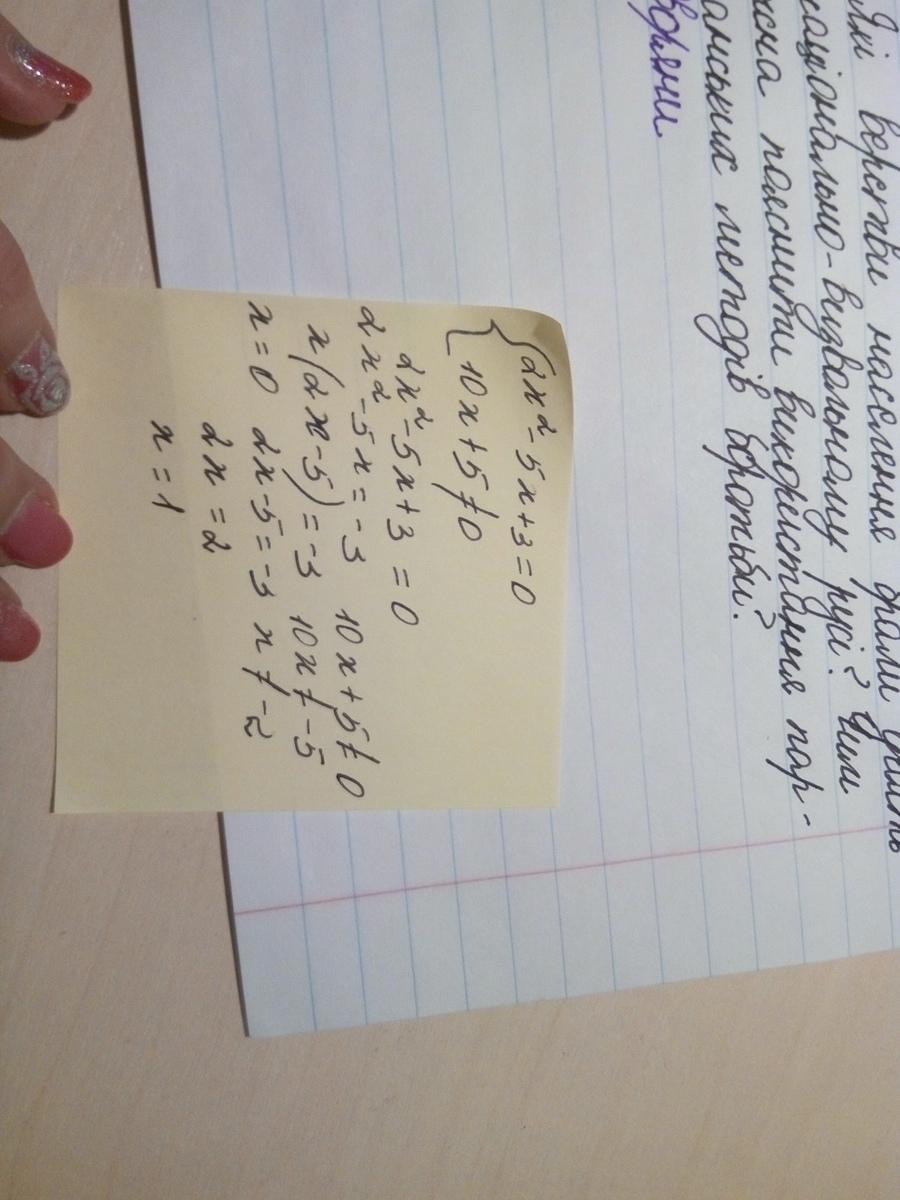 Які верстви населення брали участь
національно-визвольному русі? Чим
можна пояснити використання пар-
занських методів боротьби?
{2x²-5x+3=0
10x+5≠0
2x²-5x+3=0
2x²-5x=-3 10x+5≠0
x(2x-5)=-3 10x≠-5
x=0 2x-5=-3 x≠-2
2x=2
x=1